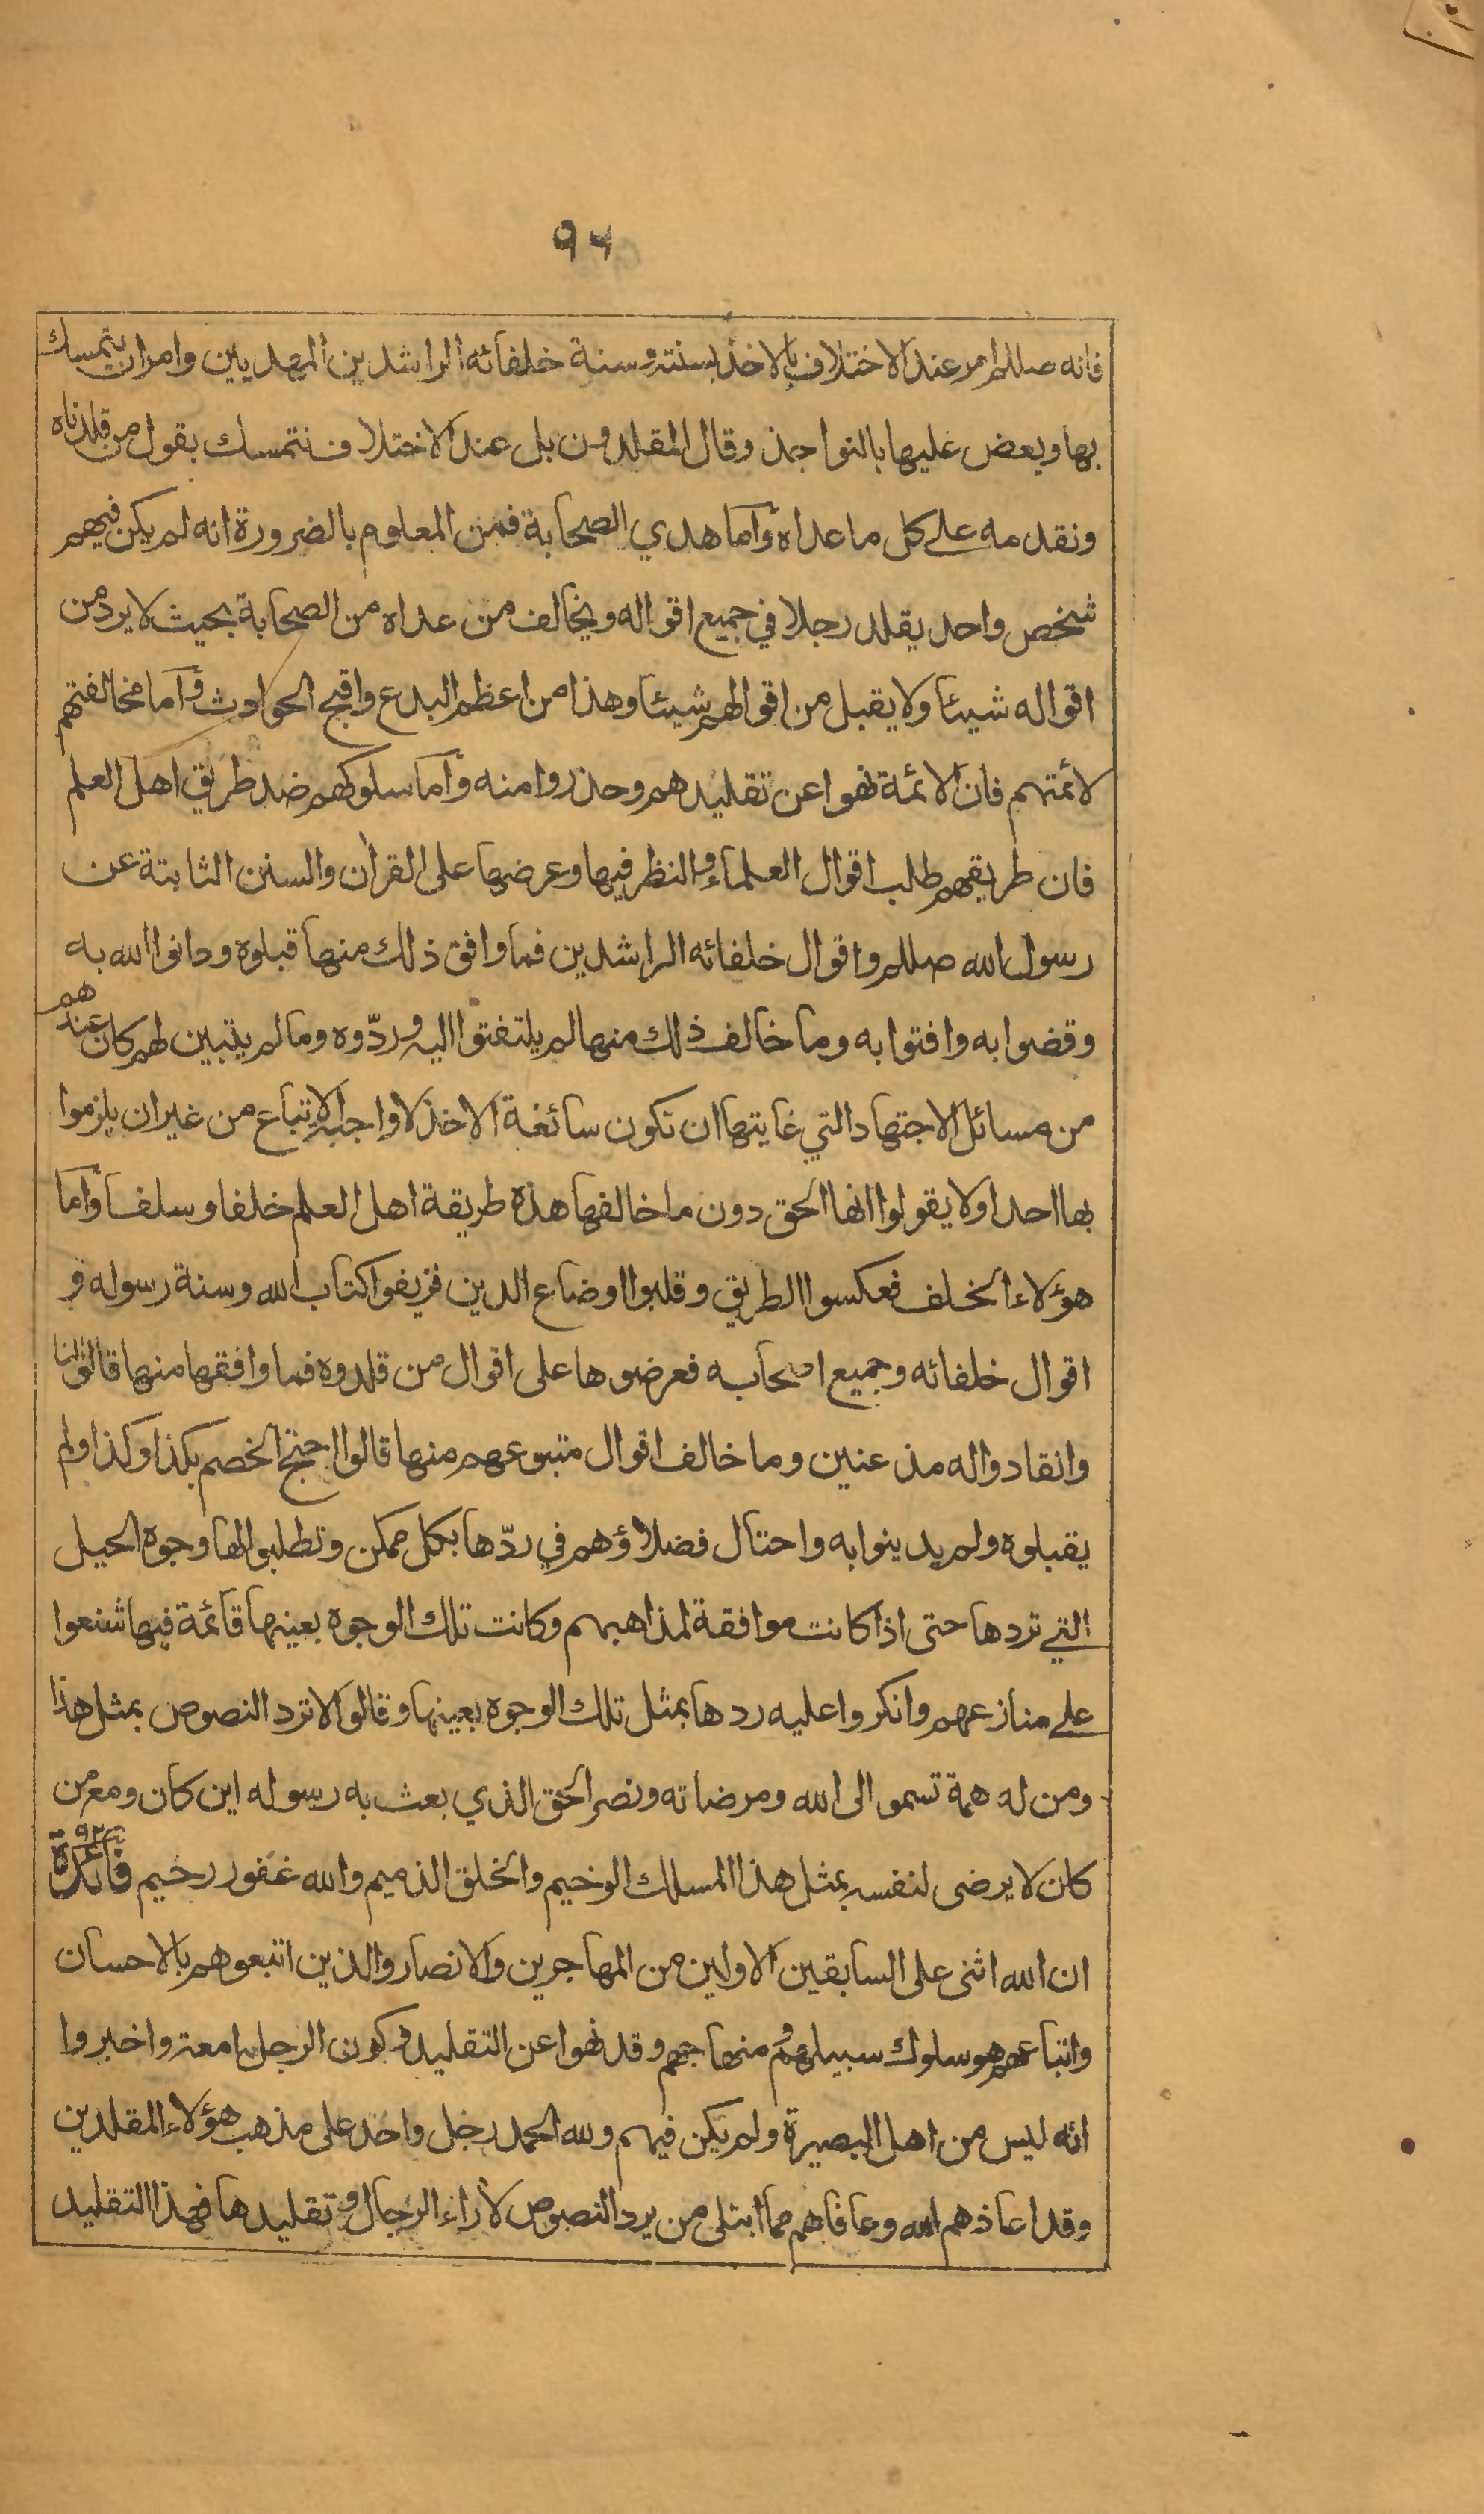 ٩٤
فانه صللم امر عند الاختلاف بالاخذ بسنته وسنة خلفائه الراشدين المهديين وامر ان يتمسك
بها ويعض عليها بالنواجذ وقال المقلدون بل عند الاختلاف نتمسك بقول من قلدناه
ونقدمه على كل ما عداه وأما هدي الصحابة فمن المعلوم بالضرورة انه لم يكن فيهم
شخص واحد يقلد رجلا في جميع اقواله ويخالف من عداه من الصحابة بحيث لا يرد من
اقواله شيئا ولا يقبل من اقوالهم شيئا وهذا من اعظم البدع واقبح الحوادث وأما مخالفتهم
لأئمتهم فان الائمة نهوا عن تقليدهم وحذروا منه وأما سلوكهم ضد طريق اهل العلم
فان طريقهم طلب اقوال العلماء والنظر فيها وعرضها على القرأن والسنن الثابتة عن
رسول الله صللم واقوال خلفائه الراشدين فما وافق ذلك منها قبلوه ودانوا الله به
وقضوا به وافتوا به وما خالف ذلك منها لم يلتفتوا اليه وردّوه وما لم يتبين لهم كان عندهم
من مسائل الاجتهاد التي غايتها ان تكون سائغة الاخذ لا واجبة الاتباع من غير ان يلزموا
بها احدا ولا يقولوا انها الحق دون ما خالفها هذه طريقة اهل العلم خلفا وسلفا وأما
هؤلاء الخلف فعكسوا الطريق وقلبوا اوضاع الدين فزيفوا كتاب الله وسنة رسوله و
اقوال خلفائه وجميع اصحابه فعرضوها على اقوال من قلدوه فما وافقها منها قالوا لنا
وانقادوا له مذعنين وما خالف اقوال متبوعهم منها قالوا احتج الخصم بكذا وكذا ولم
يقبلوه ولم يدينوا به واحتال فضلاؤهم في ردّها بكل ممكن وتطلبوا لها وجوه الحيل
التي تردها حتى اذا كانت موافقة لمذاهبهم وكانت تلك الوجوه بعينها قائمة فيها شنعوا
على منازعهم وانكروا عليه ردها بمثل تلك الوجوه بعينها وقالوا لا ترد النصوص بمثل هذا
ومن له همة تسمو الى الله ومرضاته ونصر الحق الذي بعث به رسوله اين كان ومع من
كان لا يرضى لنفسه بمثل هذا المسلك الوخيم والخلق الذميم والله غفور رحيم فائدة ٩٢
ان الله اثنى على السابقين الاولين من المهاجرين والانصار والذين اتبعوهم بالاحسان
واتباعهم هو سلوك سبيلهم ومنهاجهم وقد نهوا عن التقليد وكون الرجل امعة واخبروا
انه ليس من اهل البصيرة ولم يكن فيهم ولله الحمد رجل واحد على مذهب هؤلاء المقلدين
وقد اعاذهم الله وعافاهم مما ابتلى من يرد النصوص لأراء الرجال وتقليدها فهذا التقليد